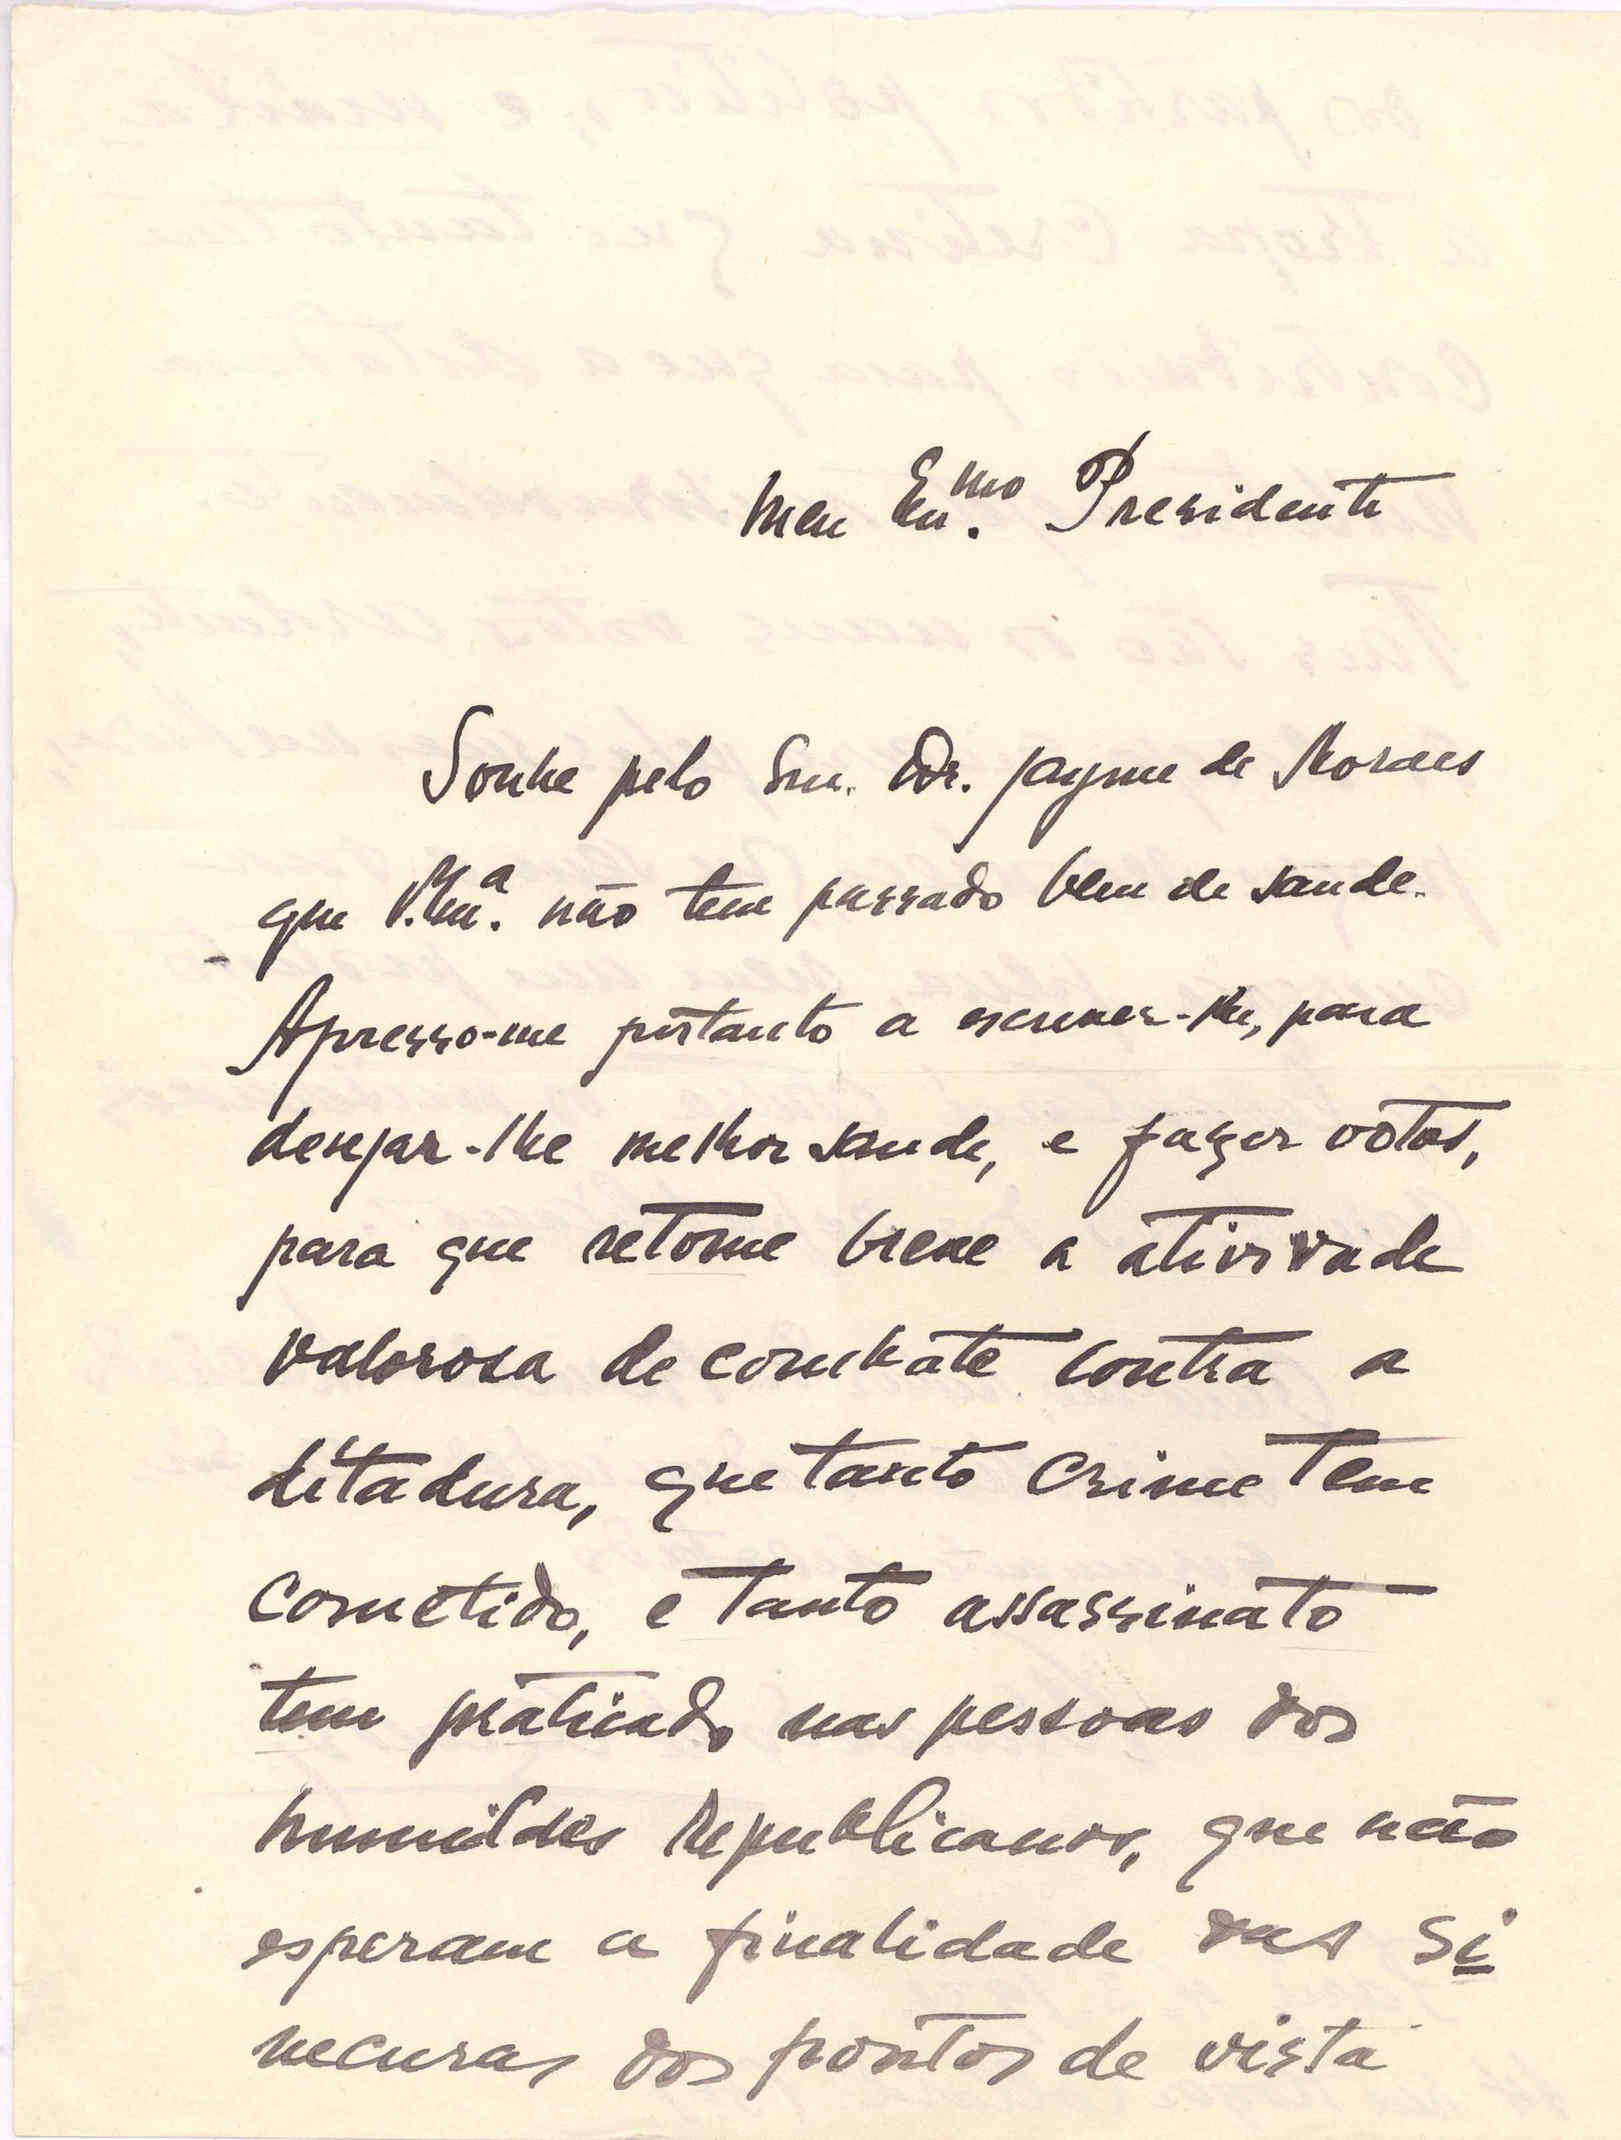 Meu Exmo. Presidente
Soube pelo Snr. Dr. Jayme de Moraes
que V. Exa. não tem passado bem de saude.
Apresso-me portanto a escrever-lhe, para
desejar-lhe melhor saude, e fazer votos,
para que retome breve a atividade
valorosa de combate contra a
ditadura, que tanto crime tem
cometido, e tanto assassinato
tem praticado nas pessoas dos
humildes Republicanos, que não
esperam a finalidade das si
necuras dos pontos de vista